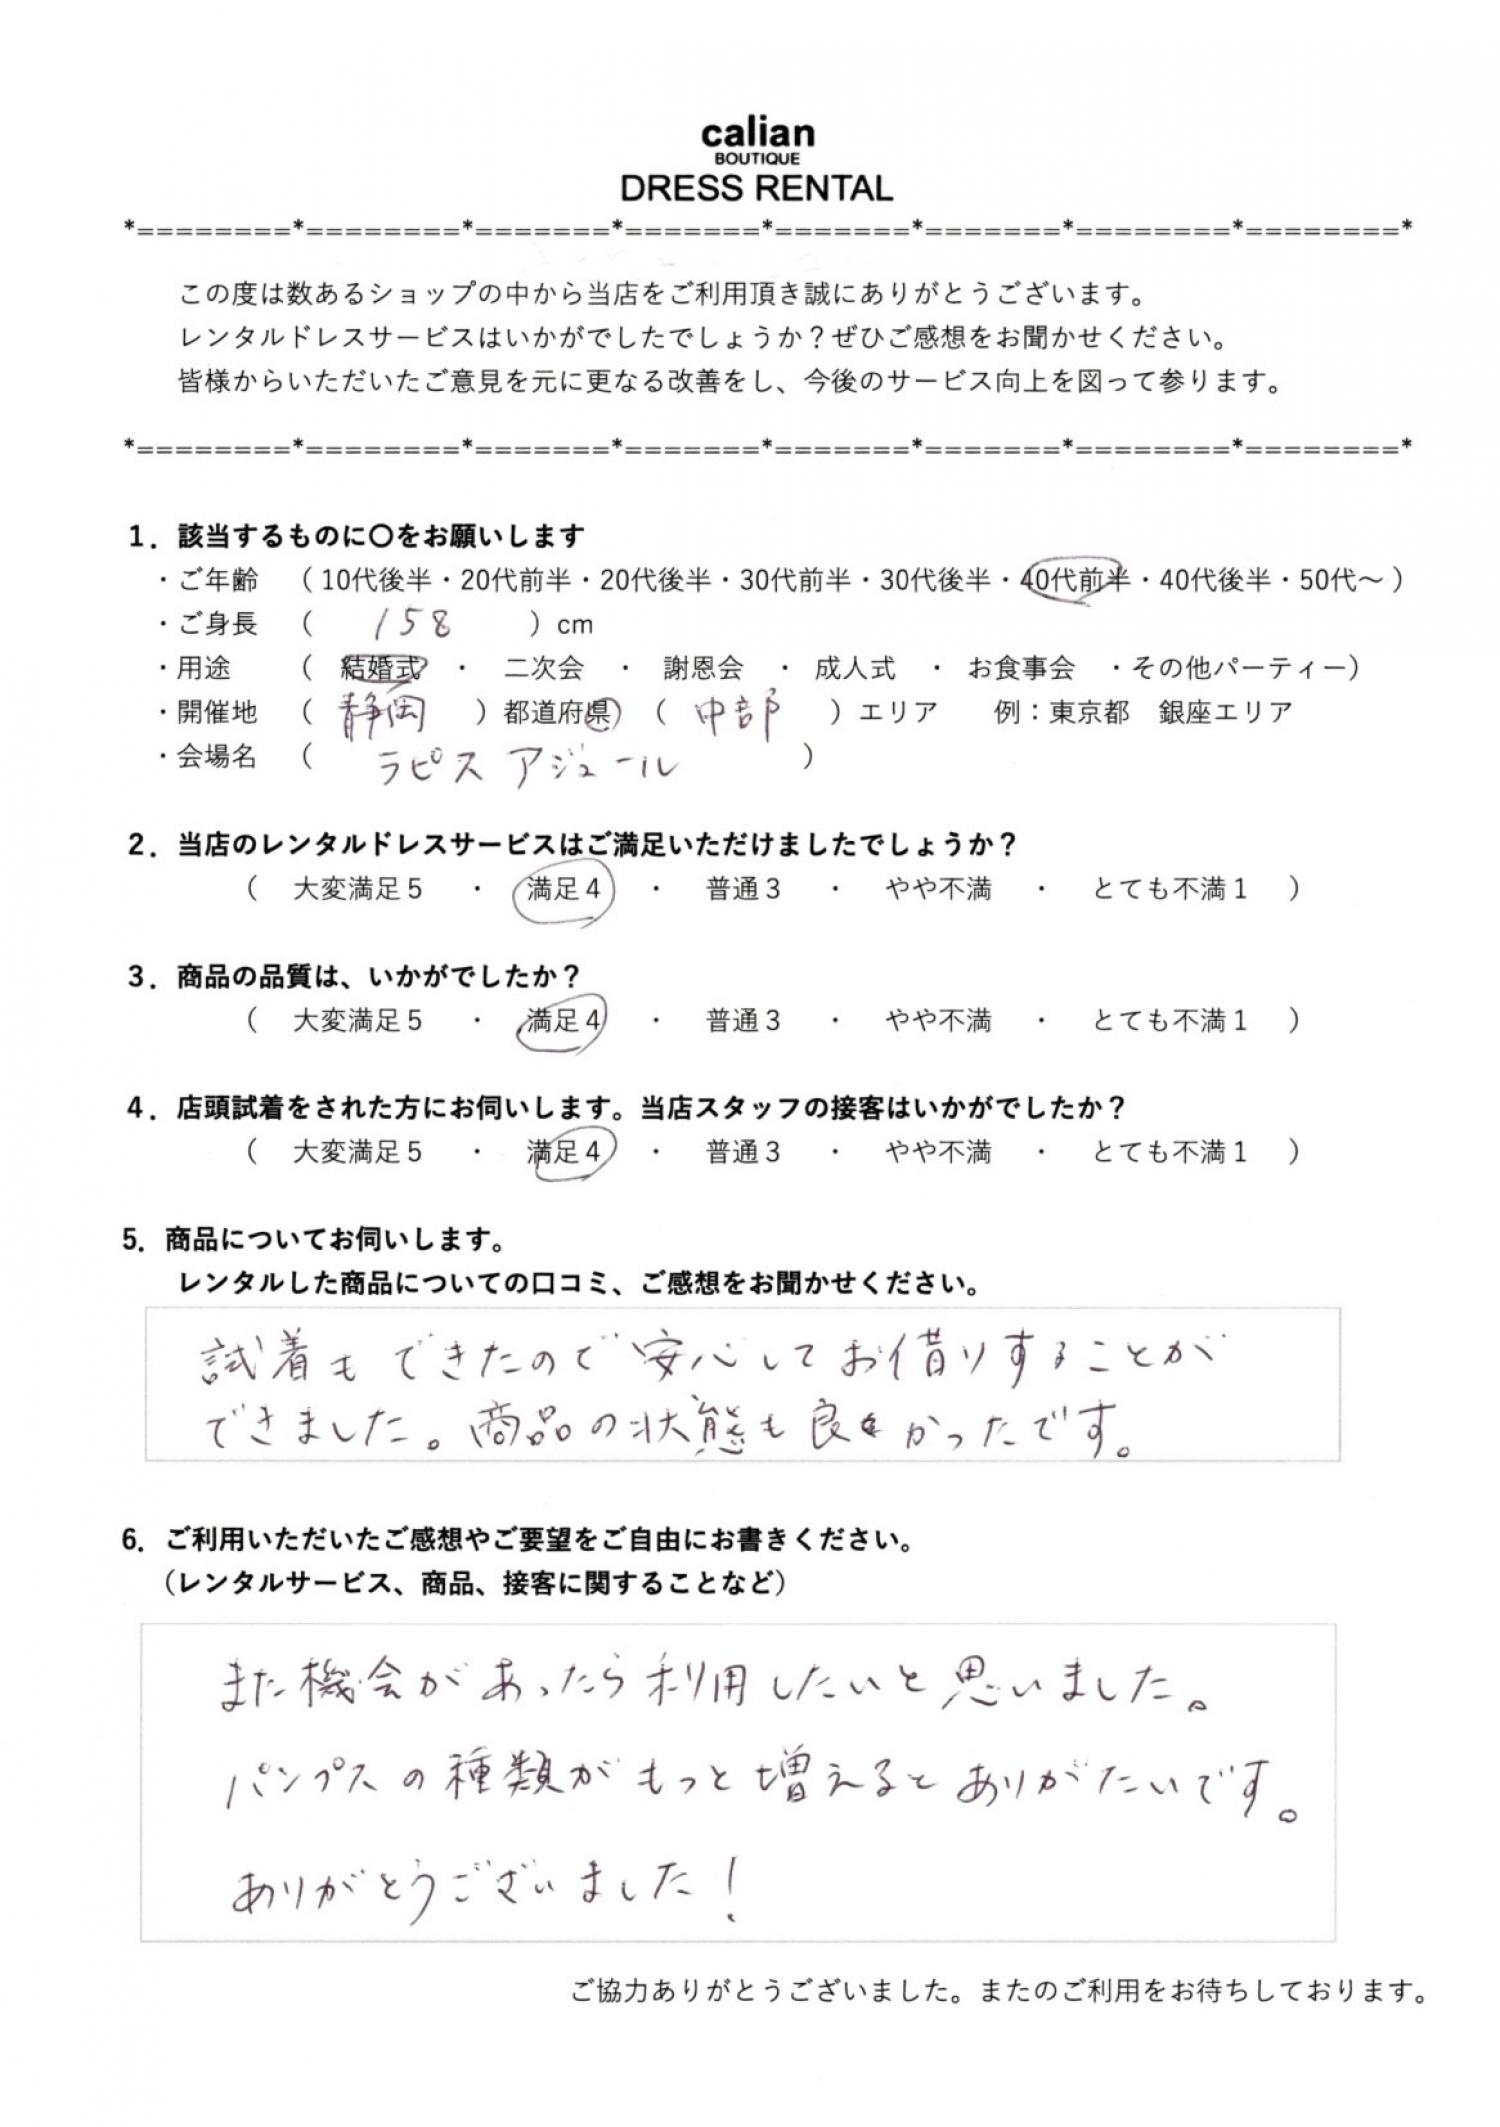 calian
BOUTIQUE
DRESS RENTAL
*========*========*=======*=======*=======*=======*========*========*
この度は数あるショップの中から当店をご利用頂き誠にありがとうございます。
レンタルドレスサービスはいかがでしたでしょうか？ぜひご感想をお聞かせください。
皆様からいただいたご意見を元に更なる改善をし、今後のサービス向上を図って参ります。
*========*========*=======*=======*=======*=======*========*========*
1．該当するものに〇をお願いします
・ご年齢 （ 10代後半・20代前半・20代後半・30代前半・30代後半・40代前半・40代後半・50代～ ）
・ご身長 （ 158 ）cm
・用途 （ 結婚式 ・ 二次会 ・ 謝恩会 ・ 成人式 ・ お食事会 ・その他パーティー）
・開催地 （ 静岡 ）都道府県 （ 中部 ）エリア 例：東京都 銀座エリア
・会場名 （ ラピスアジュール ）
2．当店のレンタルドレスサービスはご満足いただけましたでしょうか？
（ 大変満足５ ・ 満足４ ・ 普通３ ・ やや不満 ・ とても不満１ ）
3．商品の品質は、いかがでしたか？
（ 大変満足５ ・ 満足４ ・ 普通３ ・ やや不満 ・ とても不満１ ）
4．店頭試着をされた方にお伺いします。当店スタッフの接客はいかがでしたか？
（ 大変満足５ ・ 満足４ ・ 普通３ ・ やや不満 ・ とても不満１ ）
5．商品についてお伺いします。
レンタルした商品についての口コミ、ご感想をお聞かせください。
試着もできたので安心してお借りすることが
できました。商品の状態も良かったです。
6．ご利用いただいたご感想やご要望をご自由にお書きください。
（レンタルサービス、商品、接客に関することなど）
また機会があったら利用したいと思いました。
パンプスの種類がもっと増えるとありがたいです。
ありがとうございました！
ご協力ありがとうございました。またのご利用をお待ちしております。